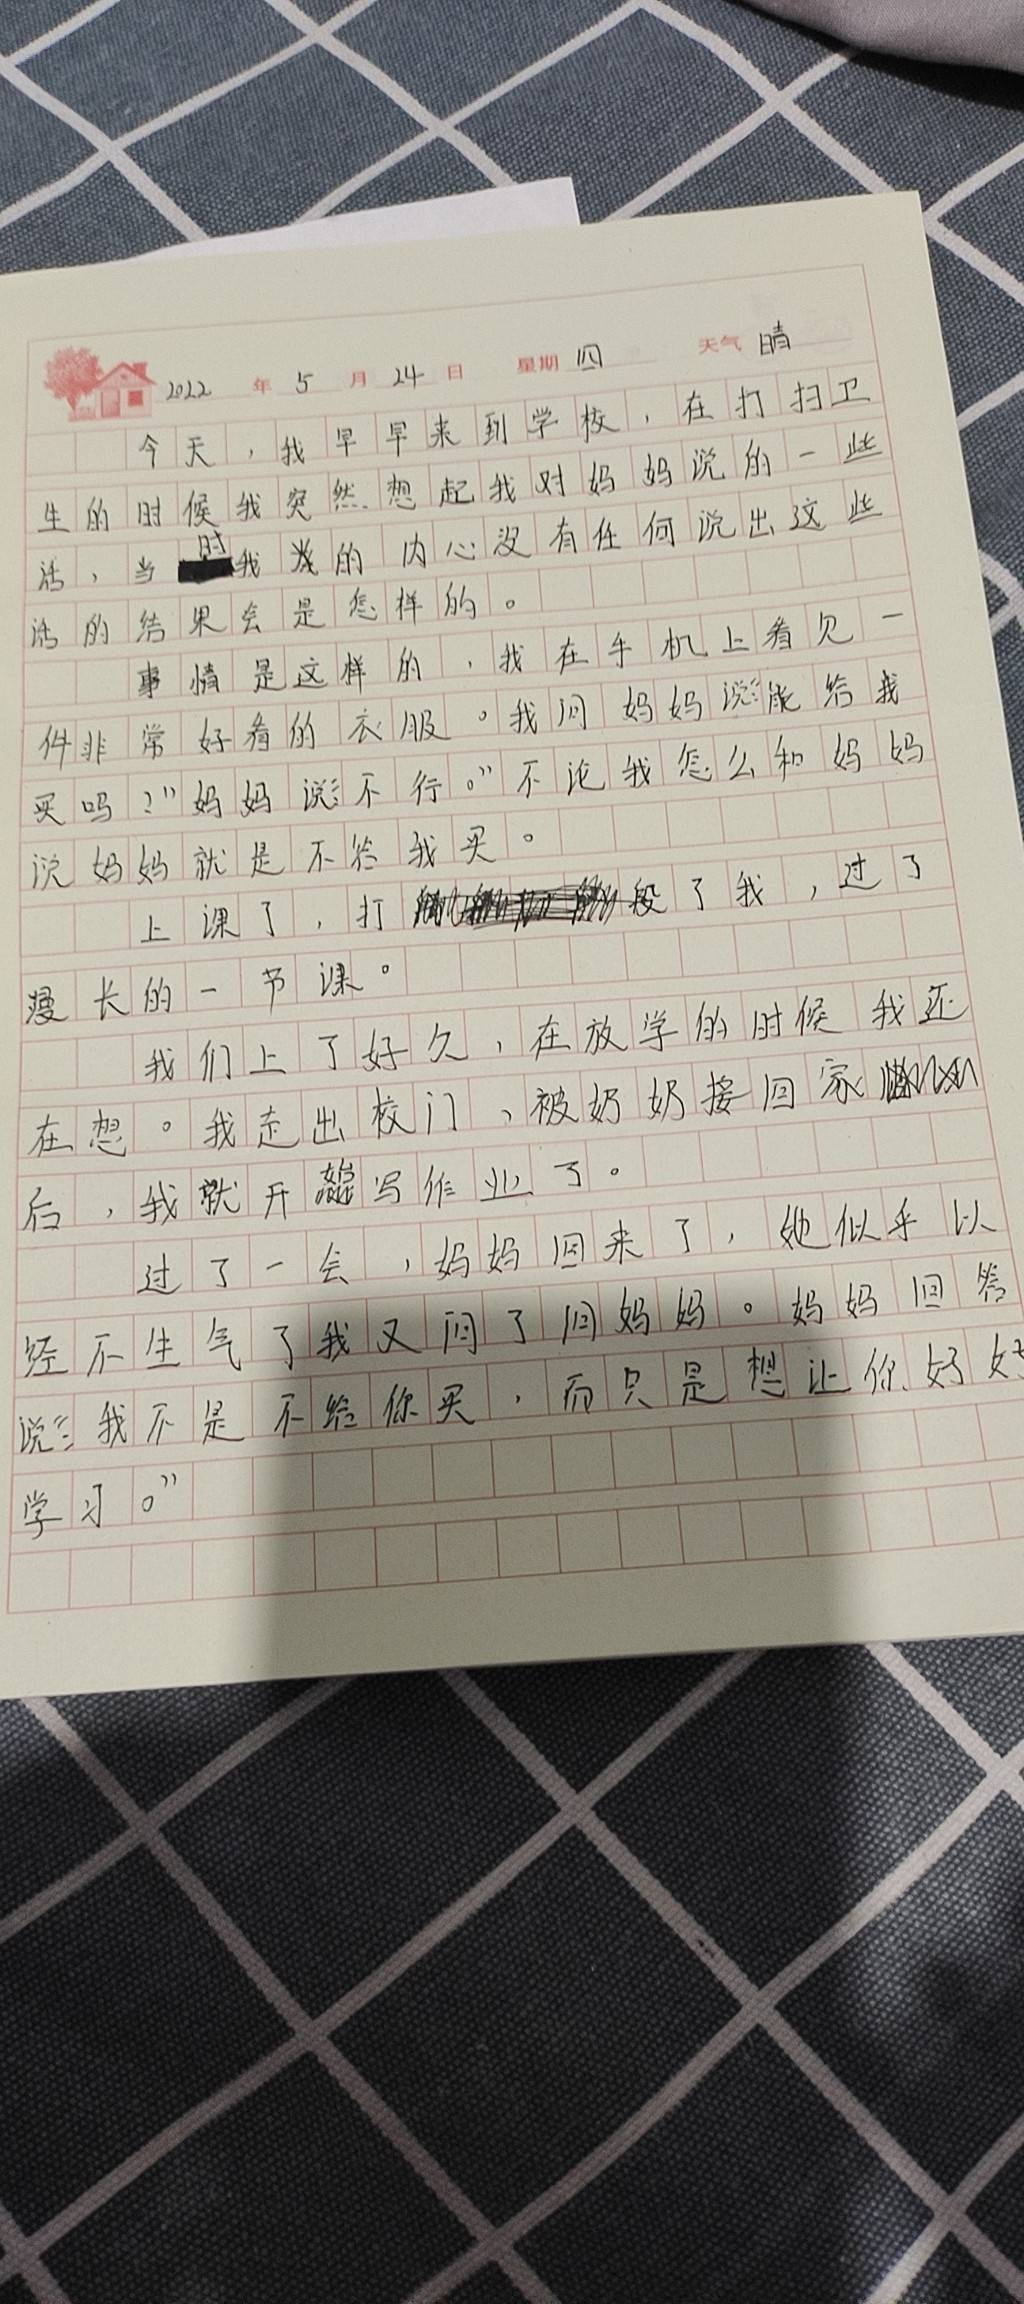 2022 年 5 月 24 日 星期 四 天气 晴
今天，我早早来到学校，在打扫卫
生的时候我突然想起我对妈妈说的一些
话，当时我我的内心没有任何说出这些
话的结果会是怎样的。
事情是这样的，我在手机上看见一
件非常好看的衣服。我问妈妈说：“能给我
买吗？”妈妈说：“不行。”不论我怎么和妈妈
说妈妈就是不给我买。
上课了，打段了我，过了
漫长的一节课。
我们上了好久，在放学的时候我还
在想。我走出校门，被奶奶接回家
后，我就开始写作业了。
过了一会，妈妈回来了，她似乎以
经不生气了我又问了问妈妈。妈妈回答
说：“我不是不给你买，而只是想让你好好
学习。”